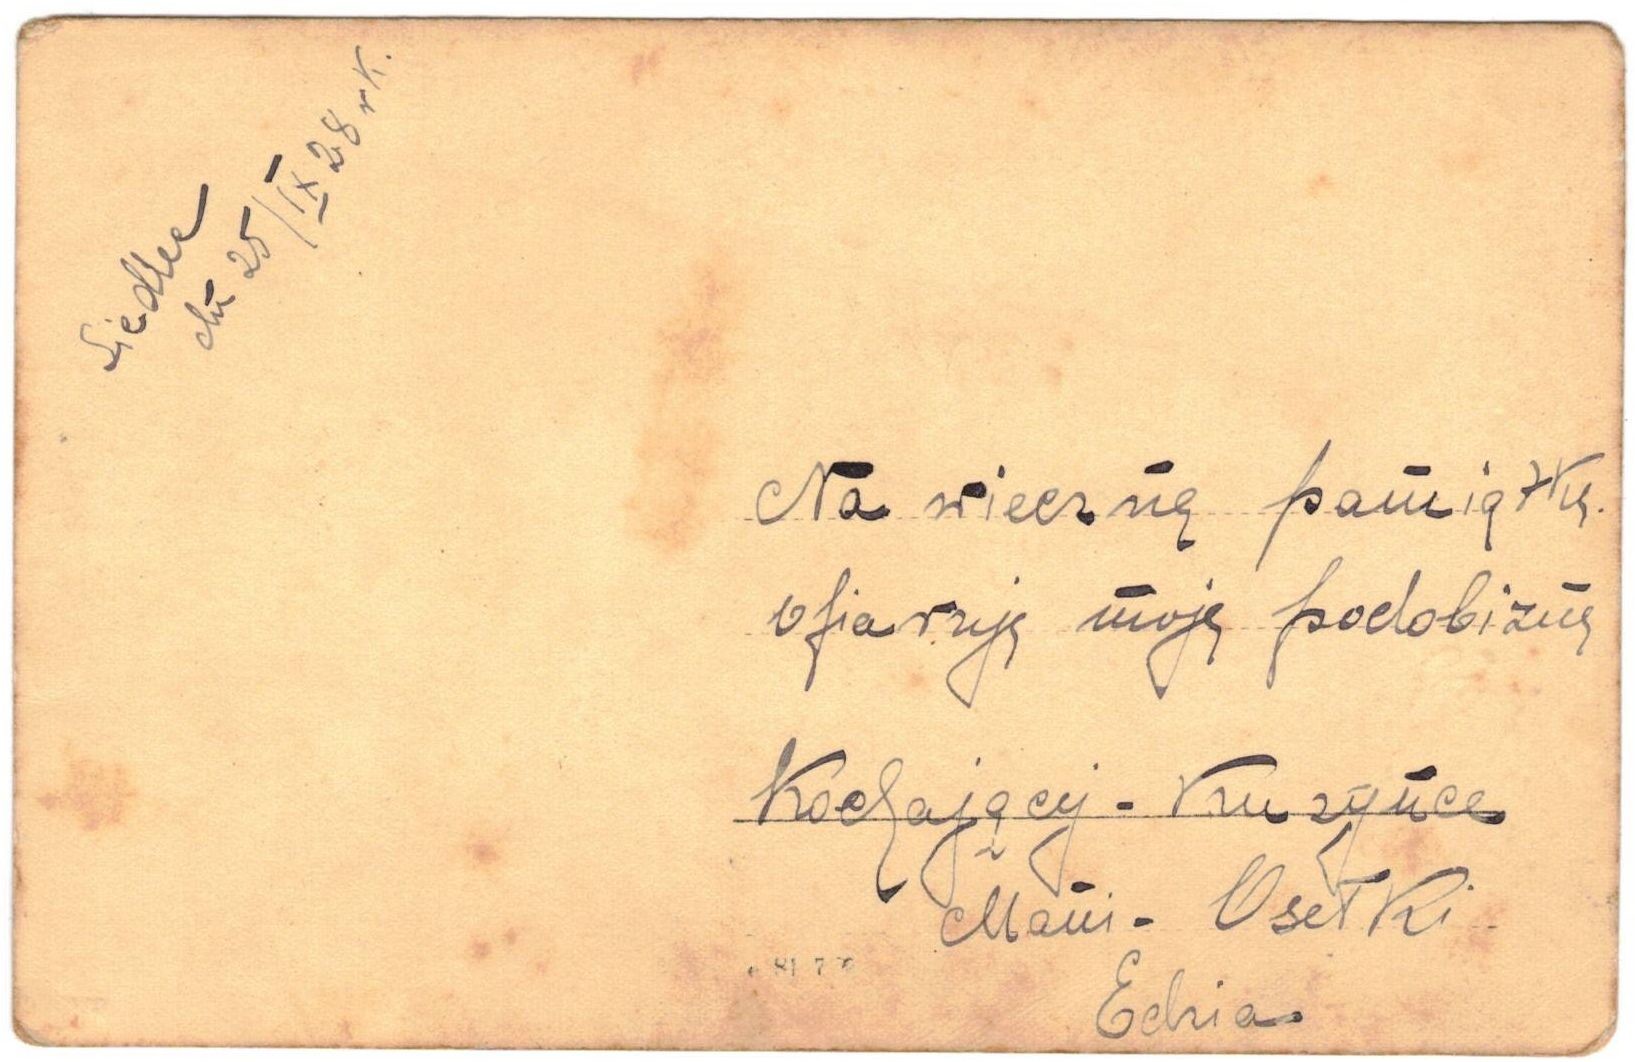 Siedlce
dn 25/IX 28 rk.
Na wieczną pamiątkę.
ofiaruję moję podobiznę
Kochającej - Kuzynce
Mani - Osetki
Edzia.